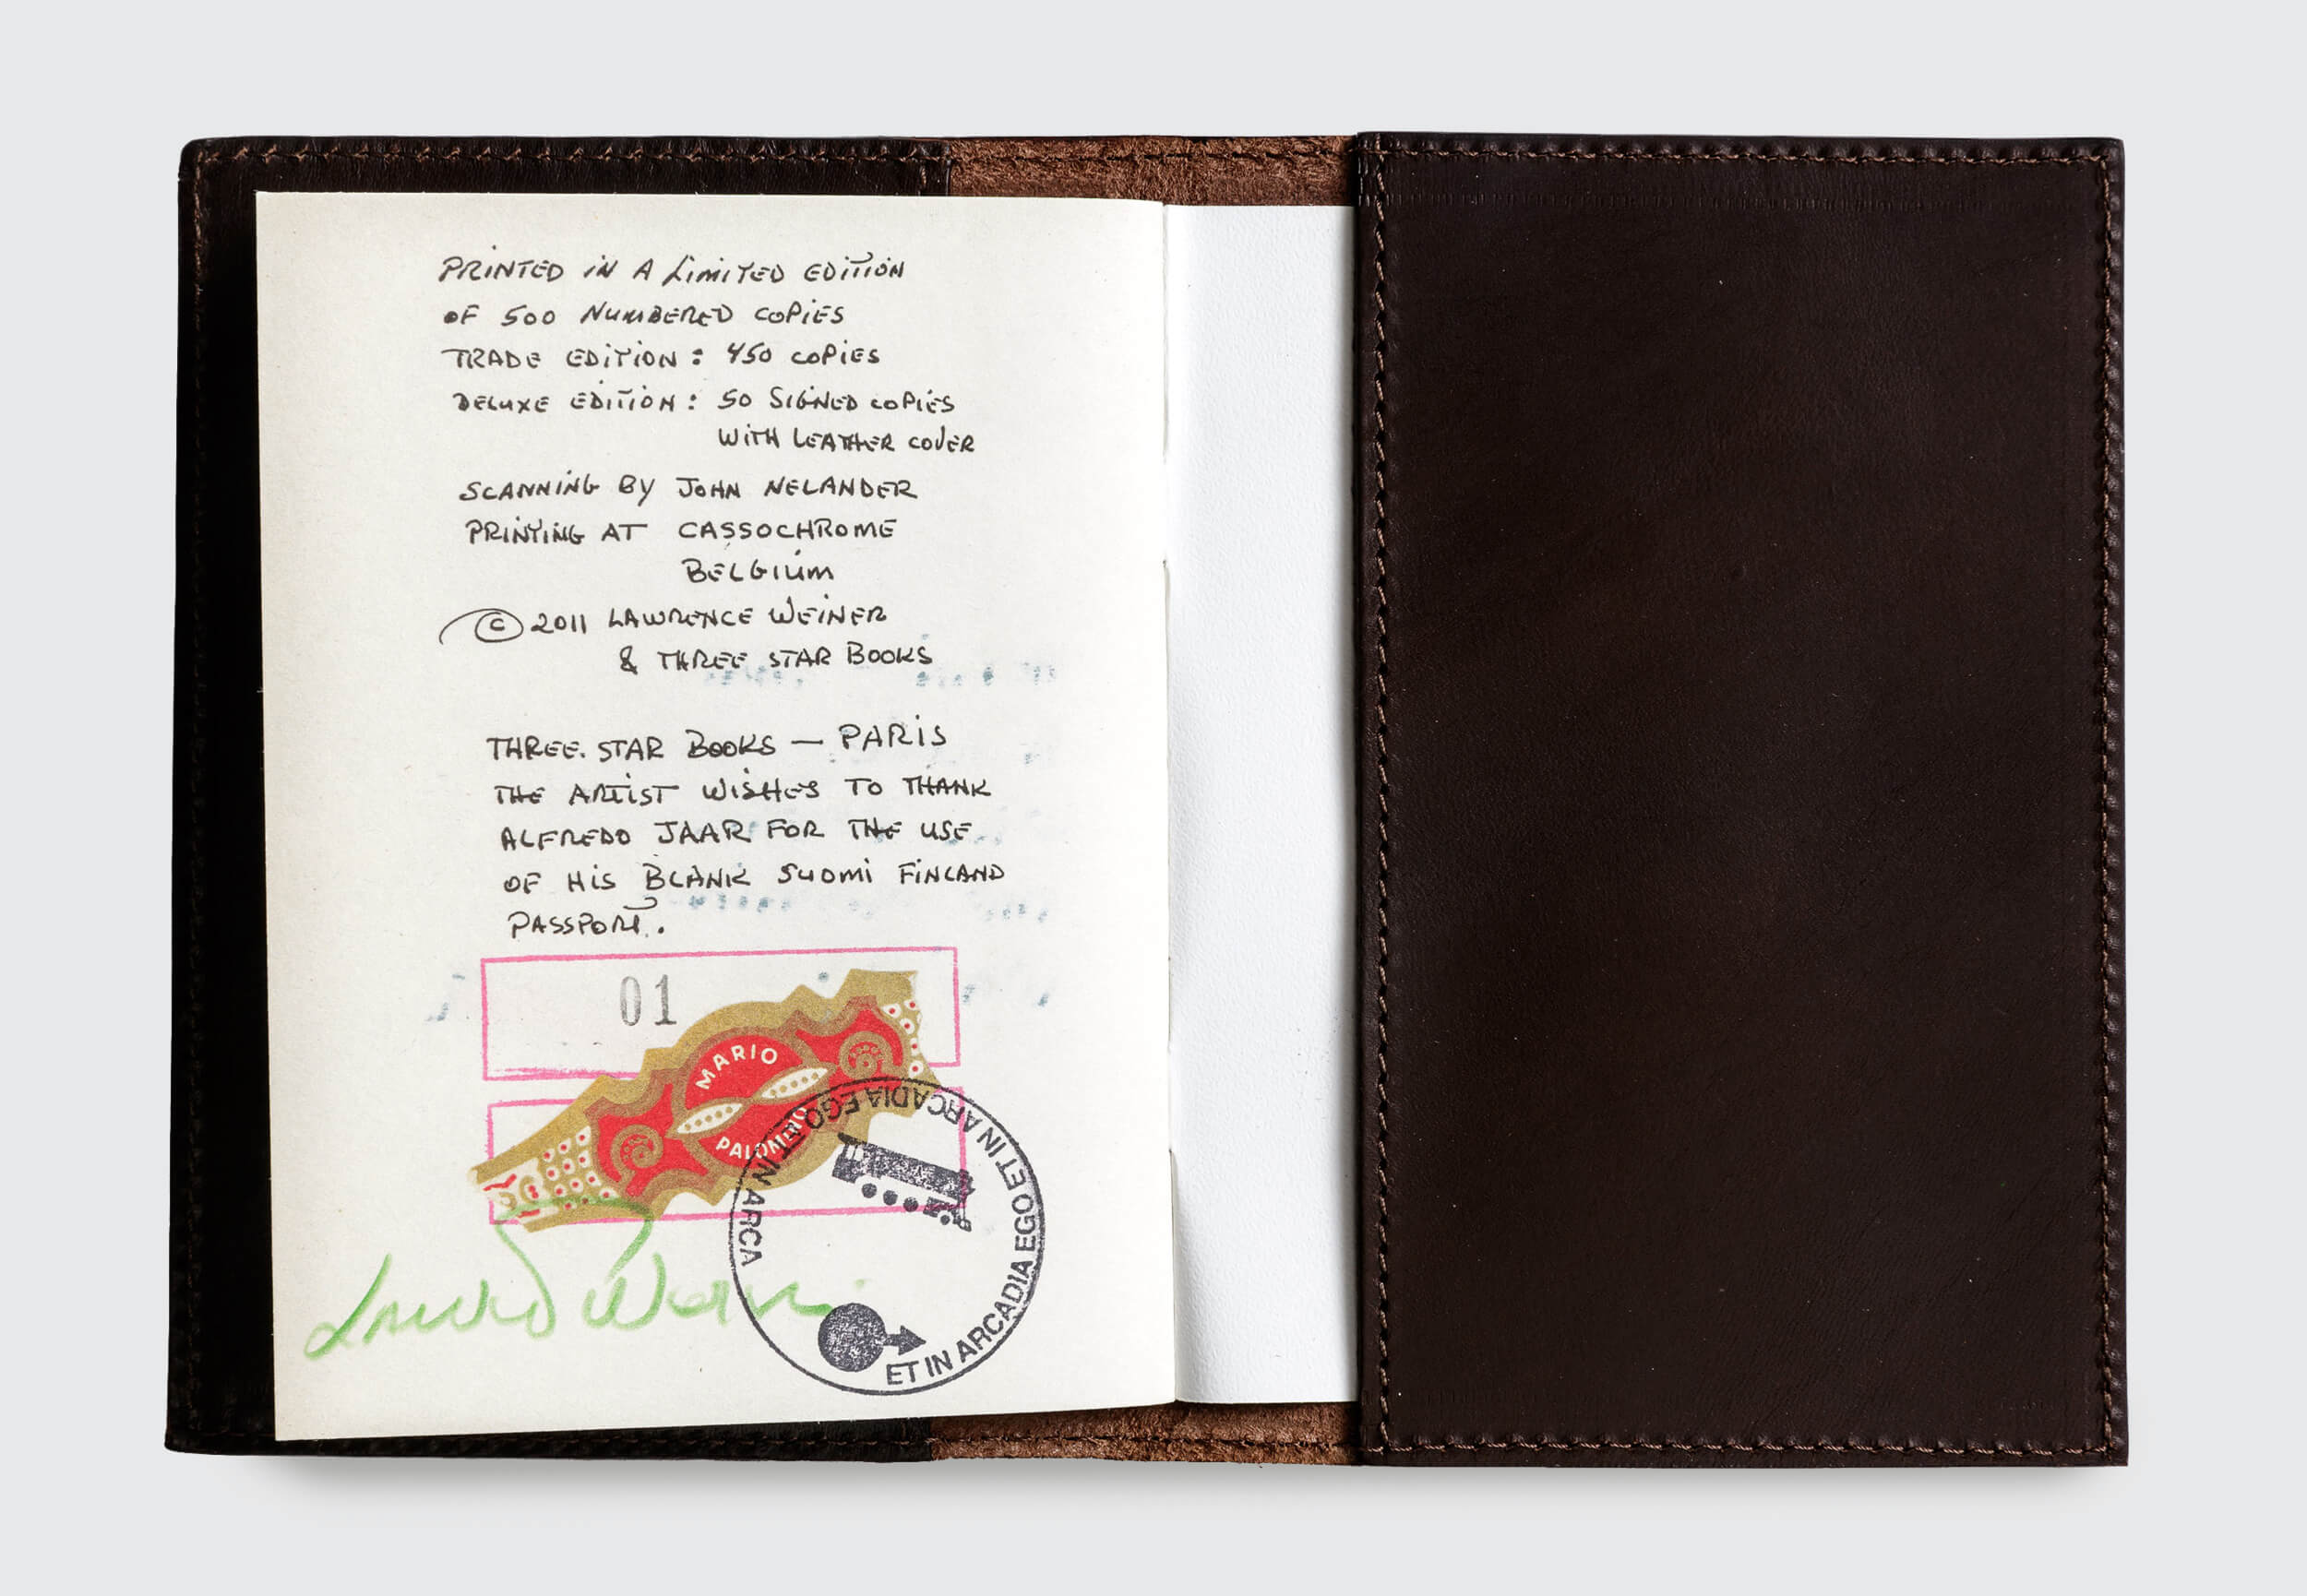 PRINTED IN A LIMITED EDITION
OF 500 NUMBERED COPIES
TRADE EDITION : 450 COPIES
DELUXE EDITION : 50 SIGNED COPIES
WITH LEATHER COVER
SCANNING BY JOHN NELANDER
PRINTING AT CASSOCHROME
BELGIUM
© 2011 LAWRENCE WEINER
& THREE STAR BOOKS
THREE. STAR BOOKS — PARIS
THE ARTIST WISHES TO THANK
ALFREDO JAAR FOR THE USE
OF HIS BLANK SUOMI FINLAND
PASSPORT.
01
MARIO
PALOMINO
ET IN ARCADIA EGO ET IN ARCADIA EGO ET IN ARCA